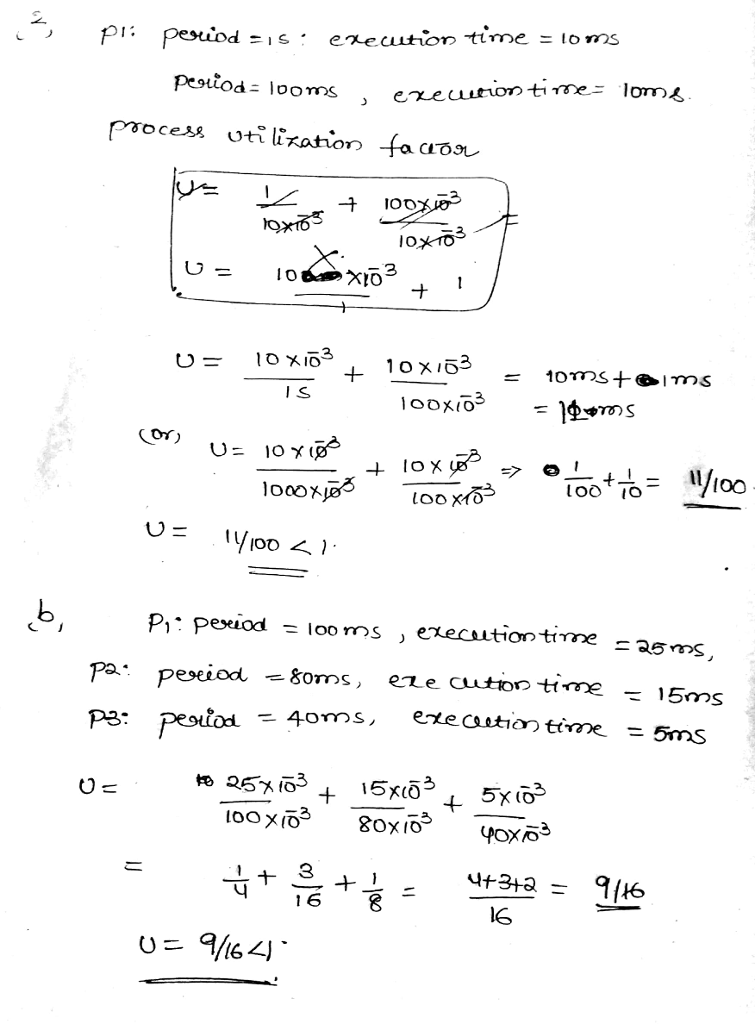 2,
P1: period = 1s : execution time = 10ms
period = 100ms , execution time = 10ms.
process utilization factor
U = 1/10×10⁻³ + 100×10⁻³/10×10⁻³ =
U = 10 ×10⁻³/1 + 1
U = 10×10⁻³/1s + 10×10⁻³/100×10⁻³ = 10ms + 1ms
(or) U = 10×10⁻³/1000×10⁻³ + 10×10⁻³/100×10⁻³ ⇒ 1/100 + 1/10 = 11/100
U = 11/100 < 1.
b, P1: period = 100ms , execution time = 25ms,
P2: period = 80ms, execution time = 15ms
P3: period = 40ms, execution time = 5ms
U = 25×10⁻³/100×10⁻³ + 15×10⁻³/80×10⁻³ + 5×10⁻³/40×10⁻³
= 1/4 + 3/16 + 1/8 = 4+3+2/16 = 9/16
U = 9/16 < 1.